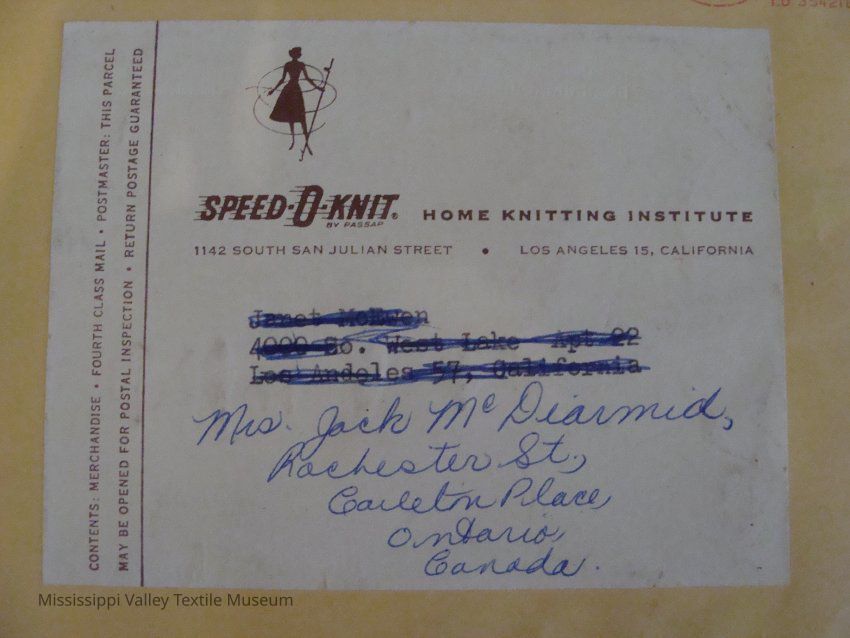 CONTENTS: MERCHANDISE • FOURTH CLASS MAIL • POSTMASTER: THIS PARCEL
MAY BE OPENED FOR POSTAL INSPECTION • RETURN POSTAGE GUARANTEED
SPEED-O-KNIT® HOME KNITTING INSTITUTE
BY PASSAP
1142 SOUTH SAN JULIAN STREET • LOS ANGELES 15, CALIFORNIA
Janet McEwen
4000 So. West Lake Apt 22
Los Andeles 57, California
Mrs. Jack McDiarmid,
Rochester St.,
Carleton Place,
Ontario,
Canada.
Mississippi Valley Textile Museum